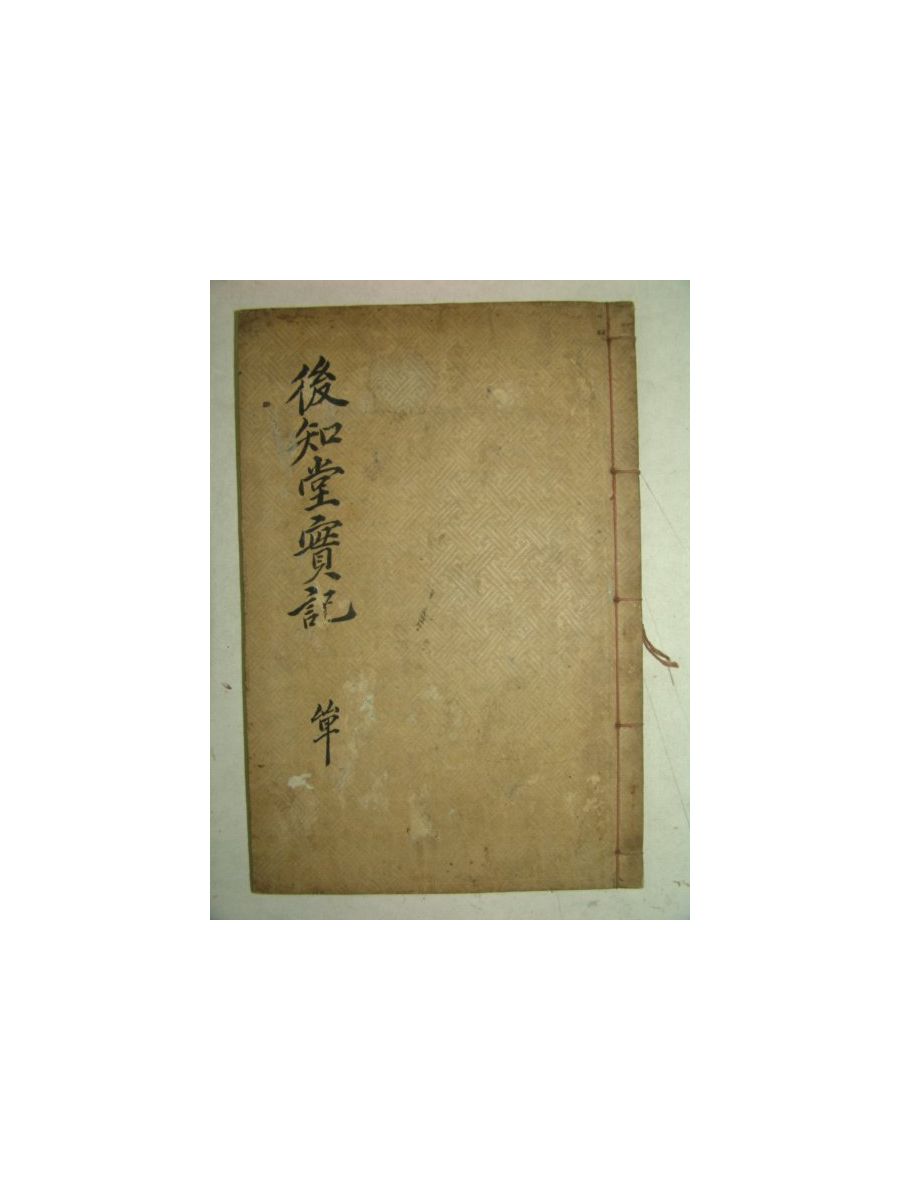 後知堂實記
單